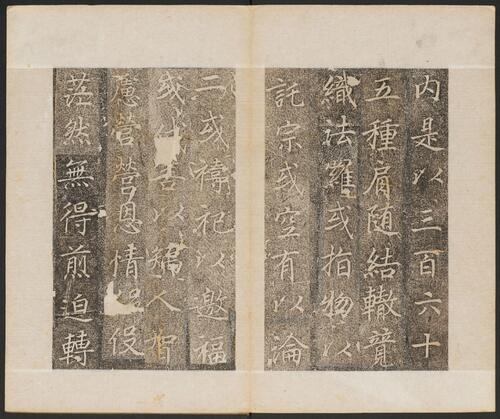 内是以三百六十
五種肩随結轍競
織法羅或指物以
託宗或空有以淪
二或禱祀以邀福
或善以矯人智
慮營營恩情役
茫然無得煎迫轉